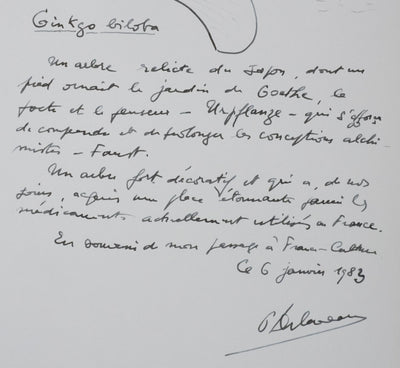 Ginkgo biloba
Un arbre relicte du Japon, dont un
pied ornait le jardin de Goethe, le
poète et le penseur - Urpflanze - qui s'efforça
de comprendre et de prolonger les conceptions alchi-
mistes - Faust.
Un arbre fort décoratif et qui a, de nos
jours, acquis une place étonnante parmi les
médicaments actuellement utilisés en France.
En souvenir de mon passage à France-Culture
Ce 6 janvier 1983
P Delaveau